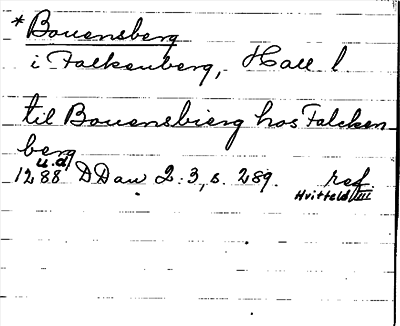 * Bouensberg
i Falkenberg, Hall l
til Bouensbierg hos Falcken
berg
u.d.
1288 DDan 2:3, s. 289. ref.
Hvitfeld III